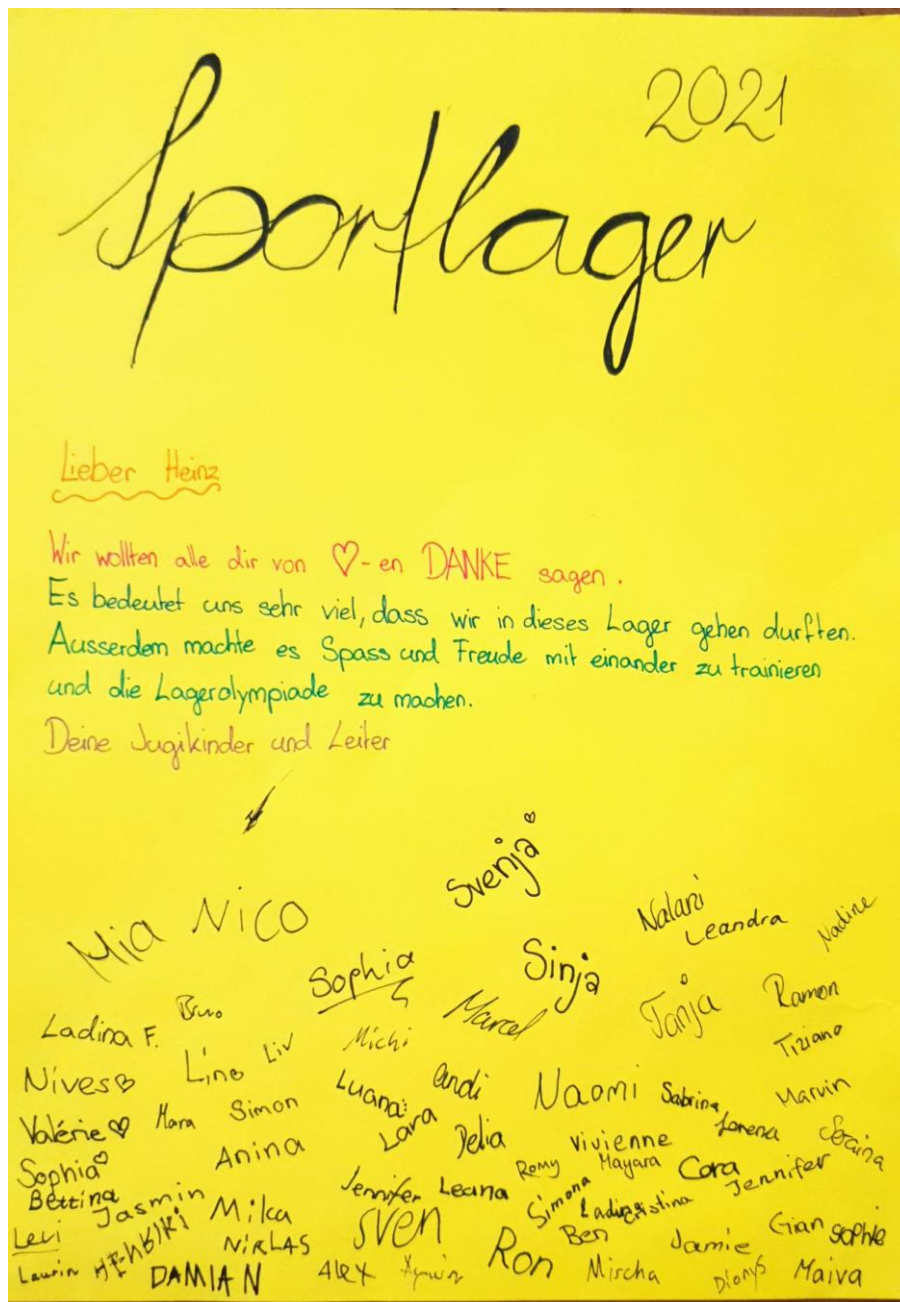 2021
Sportlager
Lieber Heinz
Wir wollten alle dir von ♡-en DANKE sagen.
Es bedeutet uns sehr viel, dass wir in dieses Lager gehen durften.
Ausserdem machte es Spass und Freude mit einander zu trainieren
und die Lagerolympiade zu machen.
Deine Jugikinder und Leiter
Svenja
Mia Nico
Nalani
Leandra
Nadine
Sophia
Sinja
Ladina F.
Marcel
Tanja
Ramon
Michi
Tiziano
Nives
Liv
Luana
Andi
Naomi
Sabrina
Marvin
Valérie ♡
Mara
Simon
Lara
Delia
Vivienne
Lorena
Sophia ♡
Anina
Romy
Mayara
Cora
Jennifer
Bettina
Jasmin
Jennifer
Leana
Simona
Levi
Mika
Sven
Ben
Gian
Sophie
Laurin
NiKLAS
Ron
Jamie
DAMIAN
Alex
Mischa
Dionys
Maiva